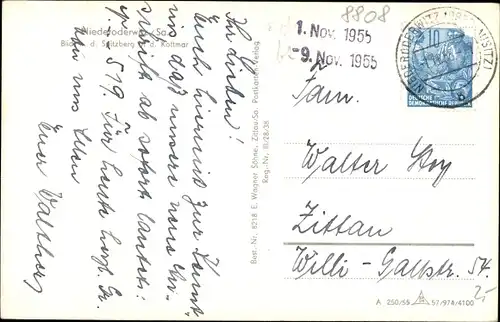 Niederoderwitz/Sa.
Blick v. d. Spitzberg z. d. Kottmar
Ihr Lieben!
Euch hiermit zur Kennt
nis daß unsere neue
ab sofort lautet:
519. Für heute herzl. Gr.
von uns allen
Euer Walther
Best.-Nr. 8218 E. Wagner Söhne, Zittau/Sa. Postkarten-Verlag
Reg.-Nr. III-28-38
8808
1. Nov. 1955
9. Nov. 1955
10
DEUTSCHE
DEMOKRATISCHE REPUBLIK
Fam.
Walter
Zittau
Willi-Gallstr. 54.
A 250/55 57/974/4100